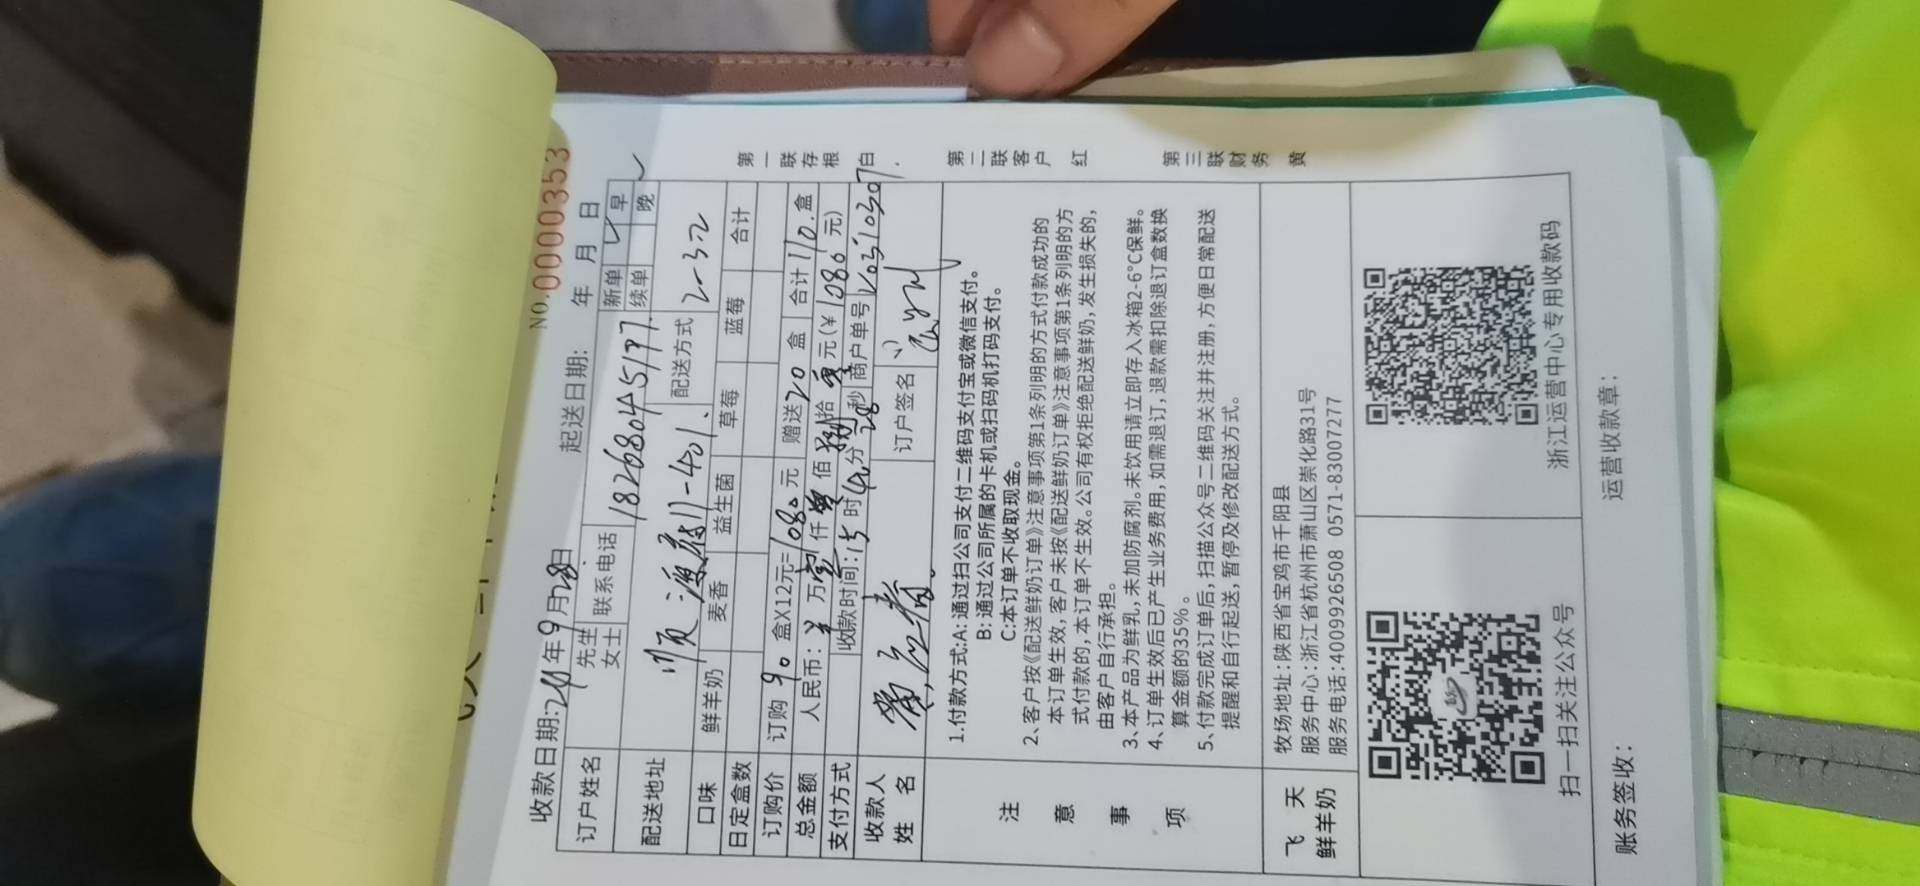 NO.0000353
收款日期:2021年9月28日 起送日期: 年 月 日
订户姓名 先生 女士 联系电话 18268045177 新单 ✓ 早
续单 晚 ✓
配送地址 11-401 配送方式
口味 鲜羊奶 麦香 益生菌 草莓 蓝莓 合计
日定盒数
订购价 订购 90 盒X12元=1080元 赠送20盒 合计110盒
总金额 人民币: 万 仟 佰 拾 元(¥1080元)
支付方式 收款时间:15时42分28秒 商户单号
收款人姓名 订户签名
第一联存根 白
第二联客户 红
第三联财务 黄
注意事项
1.付款方式:A: 通过扫公司支付二维码支付宝或微信支付。
B: 通过公司所属的卡机或扫码机打码支付。
C:本订单不收取现金。
2、客户按《配送鲜奶订单》注意事项第1条列明的方式付款成功的
本订单生效,客户未按《配送鲜奶订单》注意事项第1条列明的方
式付款的,本订单不生效。公司有权拒绝配送鲜奶,发生损失的,
由客户自行承担。
3、本产品为鲜乳,未加防腐剂。未饮用请立即存入冰箱2-6°C保鲜。
4、订单生效后已产生业务费用,如需退订,退款需扣除退订盒数换
算金额的35%。
5、付款完成订单后,扫描公众号二维码关注并注册,方便日常配送
提醒和自行起送,暂停及修改配送方式。
飞天
鲜羊奶
牧场地址:陕西省宝鸡市千阳县
服务中心:浙江省杭州市萧山区崇化路31号
服务电话:4009926508 0571-83007277
扫一扫关注公众号
浙江运营中心专用收款码
账务签收: 运营收款章: